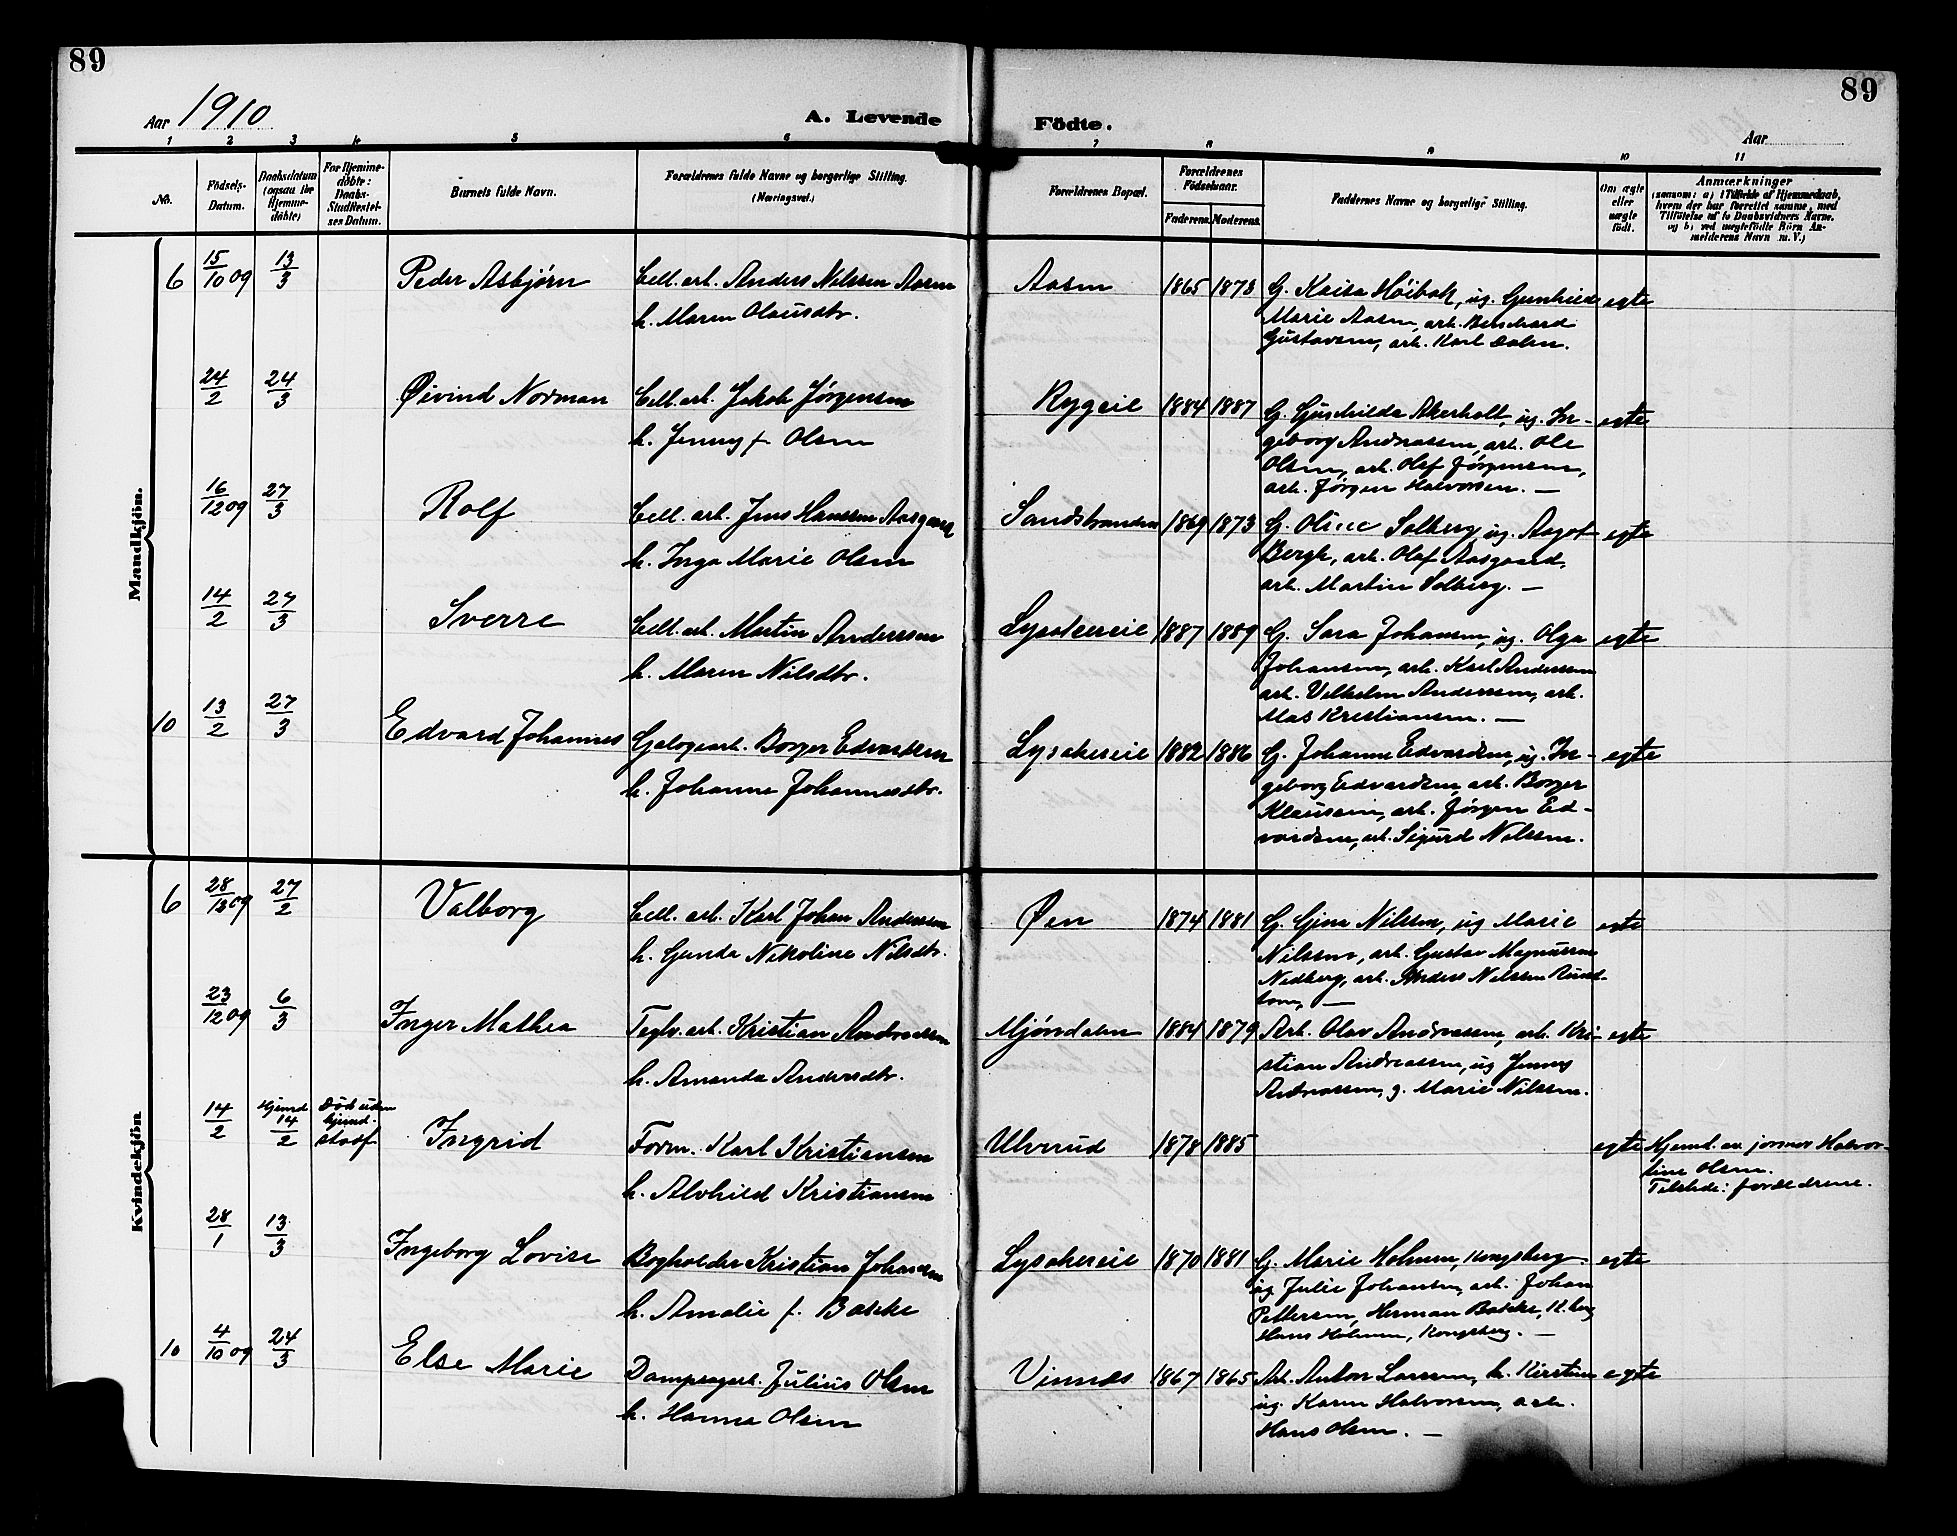 89
89
Aar 1910
A. Levende
Födte.
Aar
1 2 3 4 5 6 7 8 9 10 11
No.
Födsels-
Datum.
Daabsdatum
(ogsaa for
Hjemme-
döbte)
For Hjemme-
döbte:
Daabs-
Stadfæstel-
ses Datum.
Barnets fulde Navn.
Forældrenes fulde Navne og borgerlige Stilling.
(Næringsvei.)
Forældrenes Bopæl.
Forældrenes
Födselsaar.
Faderens.
Moderens.
Faddernes Navne og borgerlige Stilling.
Om ægte
eller
uægte
födt.
Anmærkninger
(saasom: a) i Tilfælde af Hjemmedaab,
hvem der har forrettet samme, med
Tilföielse af to Daabsvidners Navne.
og b) ved uægtefödte Börn An-
melderens Navn m. V.)
Mandkjön.
6 15/10 09 13/3 Peder Asbjørn Cell. arb. Anders Nilssen Aasen Aasen 1865 1873 G. Kaisa Höibak, ug. Gunhild egte
h. Maren Olausdtr. Marie Aasen, arb. Bernhard
Gustavsen, arb. Karl Dalen.
24/2 24/3 Øivind Norman Cell. arb. Jakob Jørgensen Rygeie 1884 1887 G. Akerholt, ug. In- egte
h. Jenny f. Olsen geborg Andreassen, arb. Ole
Olsen, arb. Olaf Jørgensen,
arb. Jørgen Halvorsen. —
16/12 09 27/3 Rolf Cell. arb. Jens Hansen Aasgaard Sandstranden 1869 1873 G. Oline Solberg, ug. Aagot egte
h. Inga Marie Olsen Bergh, arb. Olaf Aasgaard,
arb. Martin Solberg. —
14/2 27/3 Sverre Cell. arb. Martin Anderssen Lysakereie 1887 1889 G. Sara Johansen, ug. Olga egte
h. Maren Nilsdtr. Johansen, arb. Karl Anderssen
arb. Vilhelm Anderssen, arb.
Kristiansen. —
10 13/2 27/3 Edvard Johannes arb. Borger Edvardsen Lysakereie 1882 1886 G. Johanne Edvardsen, ug. In- egte
h. Johanne Johannesdtr. geborg Edvardsen, arb. Borger
Klausen, arb. Jørgen Ed-
vardsen, arb. Sigurd Nilssen.
Kvindekjön
6 28/12 09 27/2 Valborg Cell. arb. Karl Johan Anderssen Øen 1874 1881 G. Gina Nilssen, ug. Marie egte
h. Gunda Nikoline Nilsdtr. Nilssen, arb. Gustav Magnussen
Nedberg, arb. Anders Nilssen
23/12 09 6/3 Inger Mathea Teglv. arb. Kristian Andreassen Mjöndalen 1884 1879 Arb. Olav Andreassen, arb. Kri- egte
h. Amanda Andersdtr. stian Andreassen, ug. Jenny
Andreassen, g. Marie Nilssen.
14/2 Hjemd. 14/2 Död uden
hjemd.
stadf. Ingrid Form. Karl Kristiansen Ulverud 1878 1885 egte Hjemd. av jormor Halvor-
h. Alvhild Kristiansen dine Olsen.
Tilstede: forældrene.
28/1 13/3 Ingeborg Lovise Bogholder Kristian Johansen Lysakereie 1870 1881 G. Marie Holmen, Kongsberg egte
h. Amalie f. Bakke ug. Julie Johansen, arb. Johan
Pettersen, Herman Bakke, K.berg
Hans Holmen, Kongsberg. —
10 4/10 09 24/3 Else Marie Dampsagarb. Julius Olsen Vinnes 1867 1865 Arb. Anton Larsen, h. Kirstine egte
h. Hanna Olsen ug. Karen Halvorsen, arb.
Hans Olsen. —